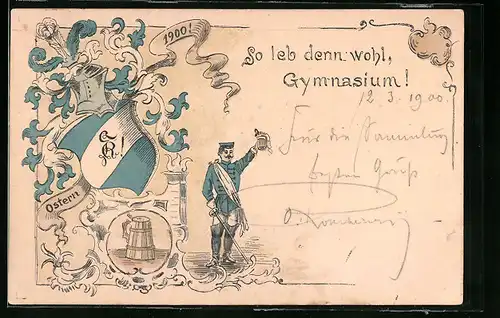 1900!
So leb denn wohl,
Gymnasium!
12.3.1900.
Für die Sammlung
besten Gruß
Ostern